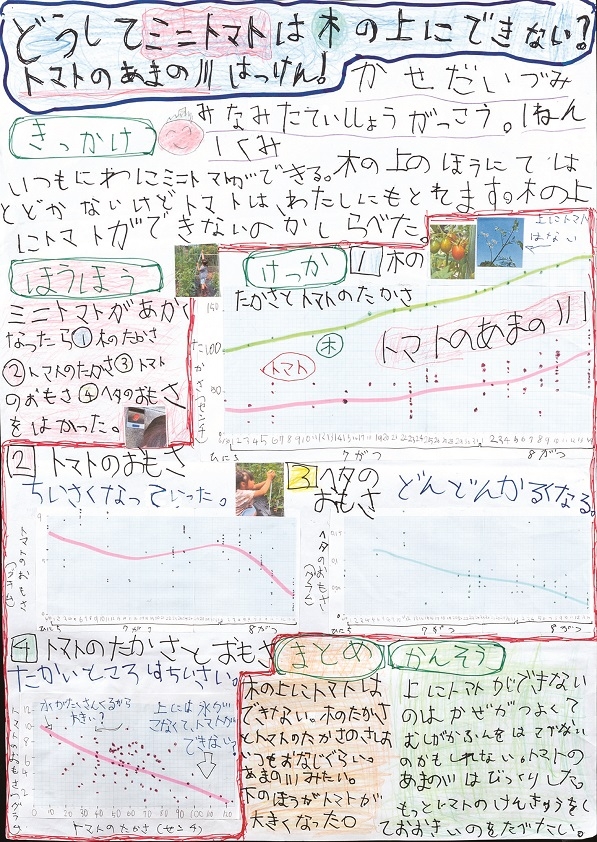 どうしてミニトマトは木の上にできない？
トマトのあまの川はっけん！
かせだいづみ
みなみたていしょうがっこう。1ねん
1くみ
きっかけ
いつもにわにミニトマトができる。木の上のほうにては
とどかないけどトマトは、わたしにもとれます。木の上
にトマトができないのかしらべた。
ほうほう
ミニトマトがあかく
なったら①木のたかさ
②トマトのたかさ③トマト
のおもさ④ヘタのおもさ
をはかった。
けっか
1 木の
たかさとトマトのたかさ
上にトマト
はない
トマトのあまの川
木
トマト
たかさ(センチ)
150
100
50
ひにち
7がつ
8がつ
2 トマトのおもさ
ちいさくなっていった。
トマトのおもさ(グラム)
ひにち
7がつ
8がつ
3 ヘタの
おもさ
どんどんかるくなる。
ヘタのおもさ(グラム)
ひにち
7がつ
8がつ
4 トマトのたかさとおもさ
たかいところはちいさい。
水がたいさんくるから
大きい？
上には水が
こなくて、トマトが
できない？
トマトのおもさ(グラム)
12
10
8
6
4
2
0 10 20 30 40 50 60 70 80 90 100 110 120
トマトのたかさ(センチ)
まとめ
木の上にトマトは
できない。木のたかさ
とトマトのたかさのさは
いつもおなじぐらい。
あまの川みたい。
下のほうがトマトが
大きくなった。
かんそう
上にトマトができない
のはかぜがつよくて
むしがかふんをはこべない
のかもしれない。トマトの
あまの川はびっくりした。
もっとトマトのけんきゅうをし
ておおきいのをたべたい。